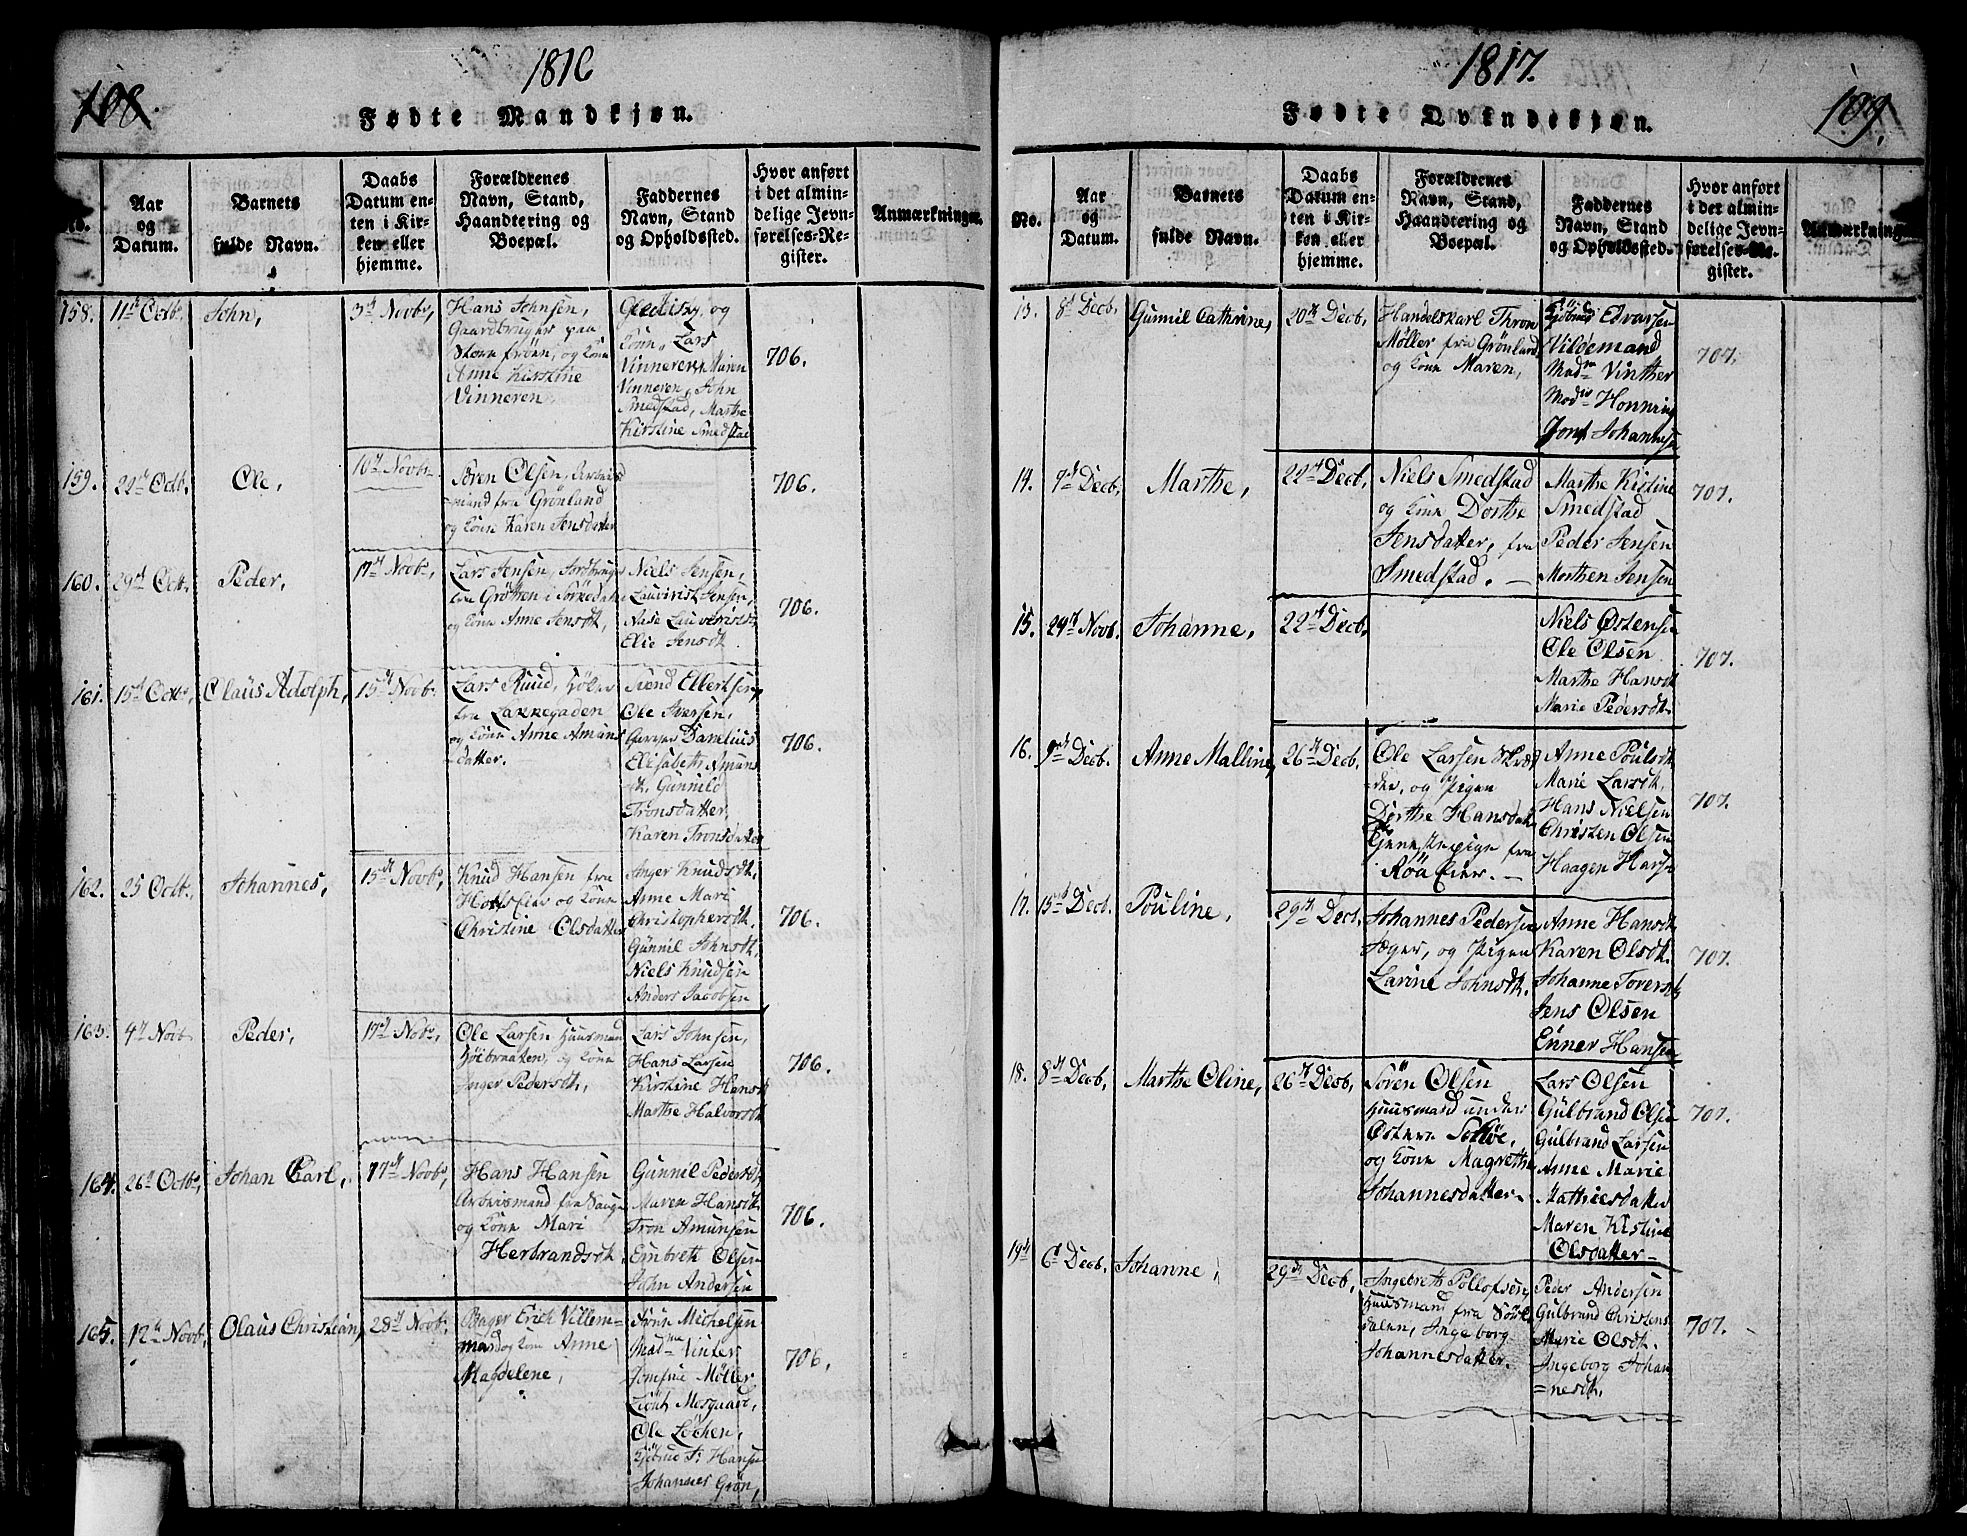 108.
1816
Fødte Mandkjøn.
No.
Aar og Datum.
Barnets fulde Navn.
Daabs Datum enten i Kirken eller hjemme.
Forældrenes Navn, Stand, Haandtering og Boepæl.
Faddernes Navn, Stand og Opholdssted.
Hvor anført i det almindelige Jevnførelses-Register.
Anmærkninger.
158.
11te Octbr.
John,
3d Novbr,
Hans Johnsen,
Gaardbruger paa
og Kone
Anne Kirstine
Vinneren
og
Kone, Lars
Vinneren, Maren
Vinneren, John
Smedstad, Marthe
Kirstine Smedstad
706.
159.
22d Octb.
Ole,
10d Novbr
Søren Olsen, Arbeids
=mand fra Grønland
og Kone Karen Jensdatter
706.
160.
29d Octb.
Peder,
17d Novbr,
Lars Jensen,
fra Grötten i Sørkedalen
og Kone Anne Jensdt,
Niels Jensen,
Lauvirist Jensen,
Elie Jensdt
706.
161.
15d Octbr,
Claus Adolph,
15d Novbr.
Lars Ruud,
fra Lakkegaden
og Kone Anne Amuns
=datter.
Svend Elbertsen,
Ole Iversen,
Danelius
Elisabeth Amuns
dt, Gunnild
Tronsdatter,
Karen Tronsdatter
706.
162.
25 Octb.
Johannes,
15d Novbr,
Knud Hansen fra
Holtseier og Kone
Christine Olsdatter
Anger Knudsdt,
Anne Mari
Christophersdt,
Gunnil Johnsdt,
Niels Knudsen
Anders Jacobsen
706.
163.
4d Novb
Peder,
17d Novbr,
Ole Larsen Huusmand
Höibraaten, og Kone
Inger Pedersdt,
Lars Johnsen,
Hans Larsen
Kirstine Hansdt
Marthe Halvorsdt
706.
164.
26d Octbr,
Johan Carl,
17d Novbr,
Hans Hansen
Arbeidsmand fra
og Kone Mari
Herbrandsdt,
Gunnil Pedersdt,
Maren Hansdt,
Tron Amunsen
Embreth Olsen
John Andersen
706.
165.
12te Novb,
Olaus Christian,
28d Novbr,
Bager Erich Villem-
mand og Kone Anne
Magdelene,
Michelsen
Madme Vinter
Jomfrue Møller
Mosgaard,
Ole Löchen,
Hansen
Johannes Grøn,
706.
1817.
109.
Fødte Qvindekjøn.
No.
Aar og Datum.
Barnets fulde Navn.
Daabs Datum enten i Kirken eller hjemme.
Forældrenes Navn, Stand, Haandtering og Boepæl.
Faddernes Navn, Stand og Opholdssted.
Hvor anført i det almindelige Jevnførelses-Register.
Anmærkninger.
13.
8d Decb,
Gunnil Cathrine,
20d Decb,
Handelskarl Thron
Møller fra Grönland
og Kone Maren,
Edvarsen
Vildemand
Madm Vinther
Madm Honning
Jomf Johannesen
707.
14.
7d Decb,
Marthe,
22d Decb,
Niels Smedstad
og Kone Dorthe
Jensdatter, fra
Smedstad. —
Marthe Kistine
Smedstad
Peder Jensen
Morthen Jensen
707.
15.
24d Novb.
Johanne,
22d Decb,
Niels Østensen
Ole Olsen
Marthe Hansdt
Marie Pedersdt.
707.
16.
9d Decb.
Anne Malline,
26d Decb,
Ole Larsen Skræd
=der, og Pigen
Dorthe Hansdatter
Tjenestepige fra
Röa Eier. —
Anne Poulsdt
Marie Larsdt,
Hans Nielsen
Christen Olsen
Haagen Hansen
707.
17.
15d Decb.
Pouline,
29d Decb.
Johannes Pedersen
Jæger, og Pigen
Larine Johnsdt.
Anne Hansdt
Karen Olsdt.
Johanne Toversdt,
Jens Olsen
Enner Hansen
707.
18.
8d Decb,
Marthe Oline,
26d Decb,
Sören Olsen
Huusmand under
Østern
og Kone Magrethe
Johannesdatter
Lars Olsen
Gulbrand Olsen
Gulbrand Larsen
Anne Marie
Mathiesdatter
Maren Kistine
Olsdatter —
707.
19d
6d Decb,
Johanne,
29d Decb,
Ingebreth Pollofsen,
Huusmand fra Sörke
dalen, Ingeborg
Johannesdatter.
Peder Andersen
Gulbrand Christens
Marie Olsdt.
Ingeborg Johan
=nesdt,
707.